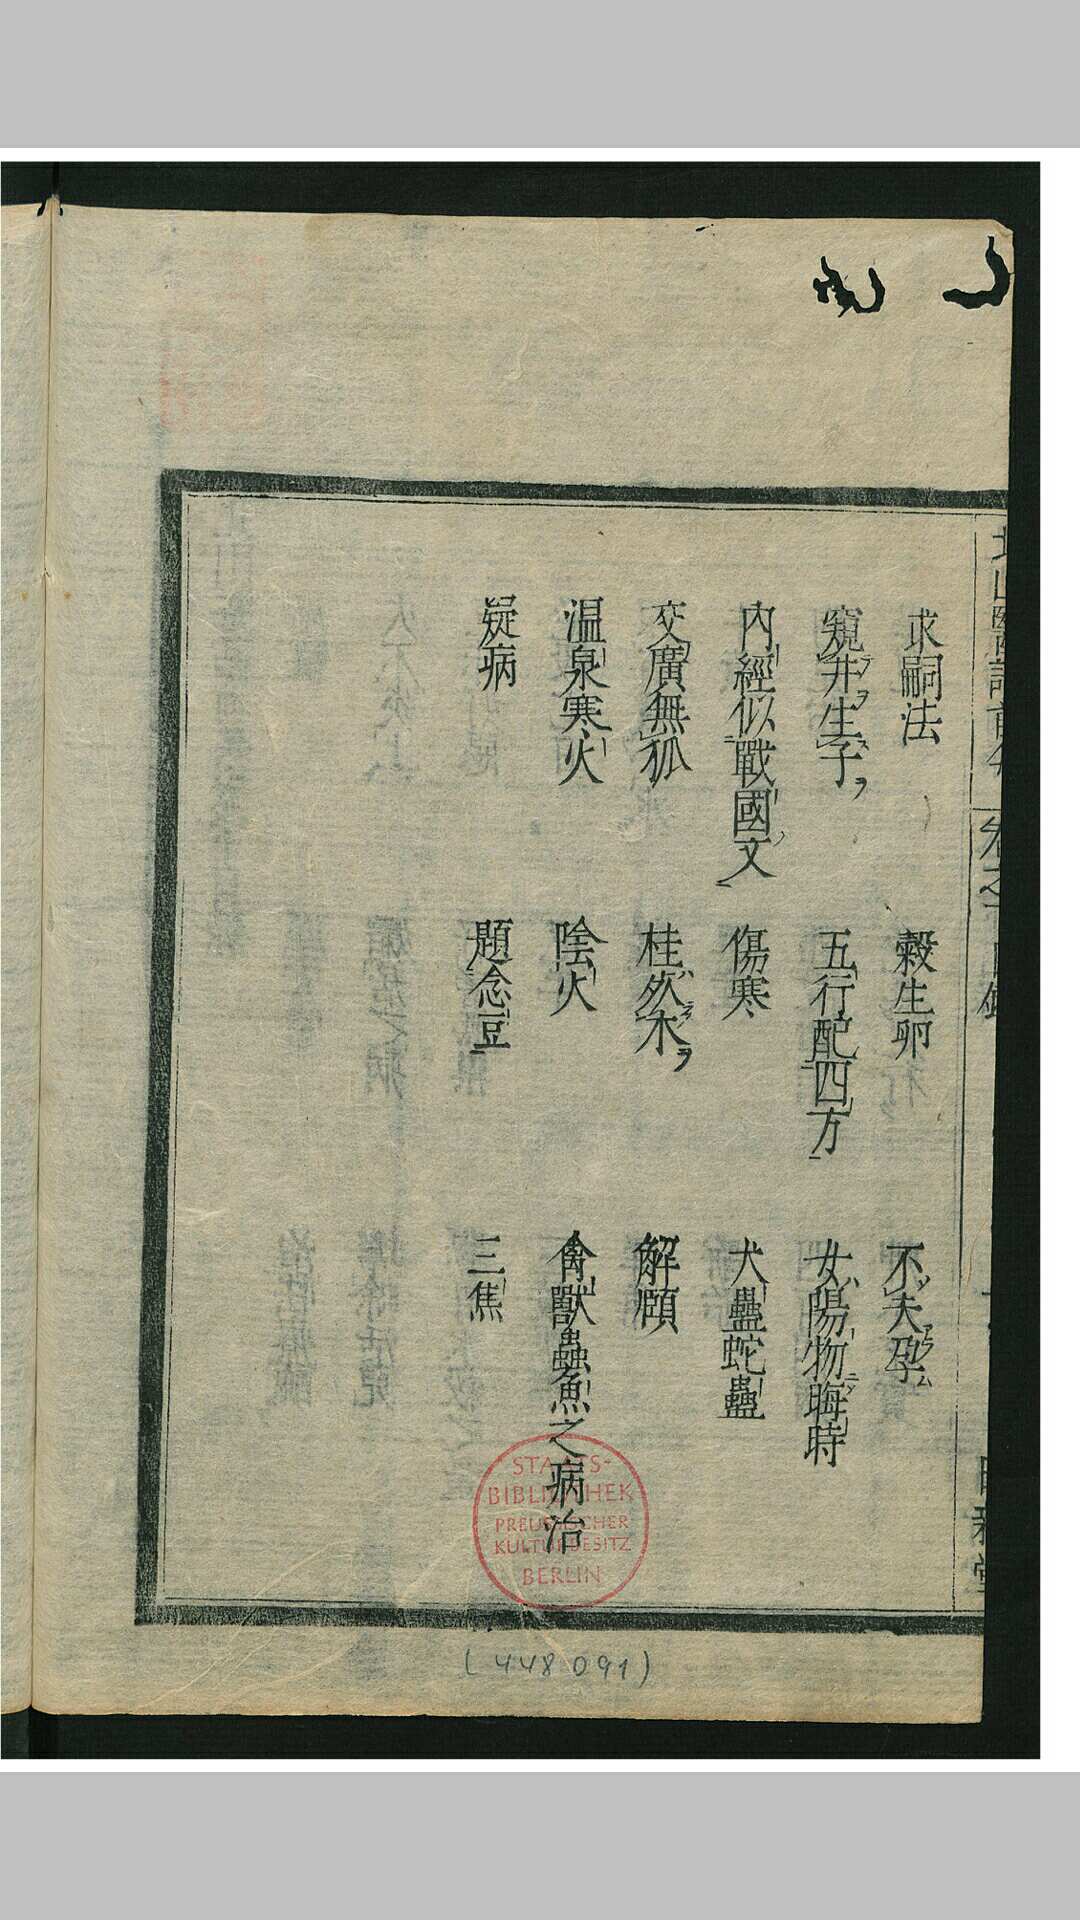 求嗣法
穀生卵
不夫孕
窺井生子
五行配四方
女陽物晦時
內經似戰國文
傷寒
犬蠱蛇蠱
交廣無狐
桂然木
解㑹
温泉寒火
陰火
禽獸蟲魚之病治
疑病
題念豆
三焦
STAATS-
BIBLIOTHEK
PREUSSISCHER
KULTURBESITZ
BERLIN
(448 091)